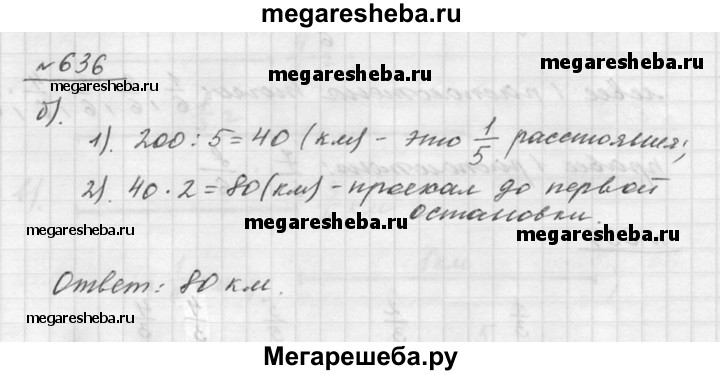 megaresheba.ru
№ 636
megaresheba.ru
megaresheba.ru
б).
1). 200 : 5 = 40 (км) - это 1/5 расстояния;
2). 40 · 2 = 80 (км) - проехал до первой
остановки.
megaresheba.ru
megaresheba.ru
Ответ: 80 км.
megaresheba.ru
megaresheba.ru
Мегарешеба.ру